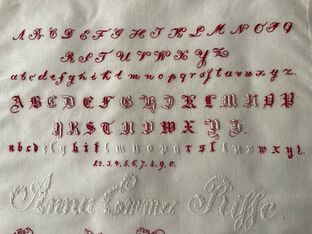 A B C D E F G H I K L M N O P Q
R S T U V W X Y Z
a b c d e f g h i k l m n o p q r s t u v w x y z.
A B C D E F G H I K L M N O P
Q R S T U V W X Y Z.
a b c d e f g h i k l m n o p q r s t u v w x y z.
1. 2. 3. 4. 5. 6. 7. 8. 9. 0.
Anna Emma Riffe.